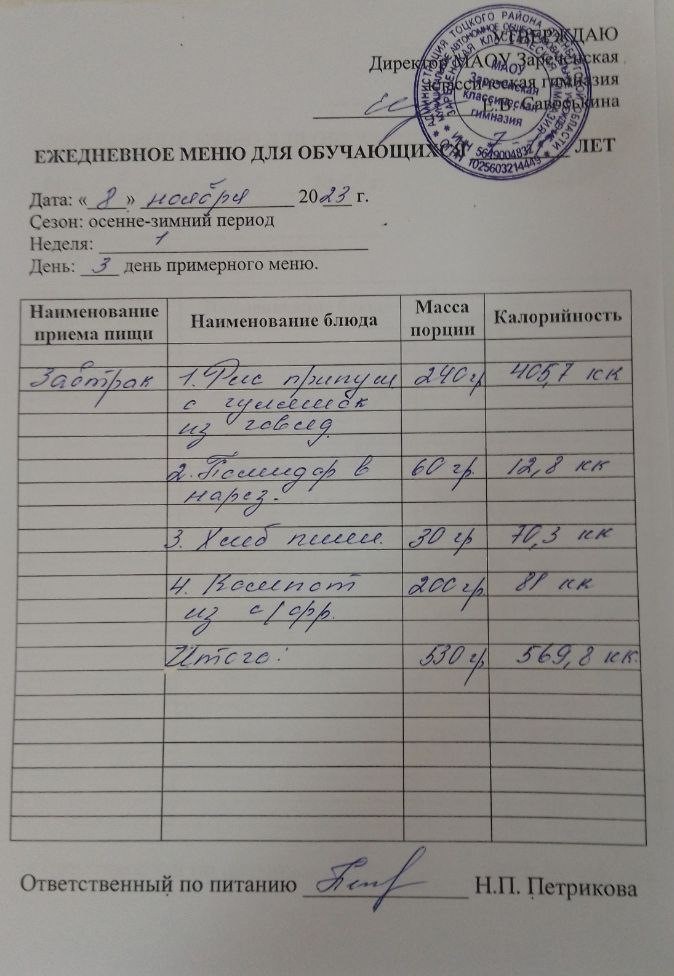 УТВЕРЖДАЮ
Директор МАОУ Зареченская
классическая гимназия
Е.В. Савоськина
АДМИНИСТРАЦИЯ ТОЦКОГО РАЙОНА
МАОУ
Зареченская
классическая
гимназия
ИНН 5649004832
ОГРН 1025603214449
ЕЖЕДНЕВНОЕ МЕНЮ ДЛЯ ОБУЧАЮЩИХСЯ 7 - ЛЕТ
Дата: «8» ноября 2023 г.
Сезон: осенне-зимний период
Неделя: 1
День: 3 день примерного меню.
Наименование приема пищи Наименование блюда Масса порции Калорийность
Завтрак 1. Рис припущ 240 гр 405,7 кк
с гуляшек
из говяд.
2. Помидор в 60 гр 12,8 кк
нарез.
3. Хлеб пшен. 30 гр 70,3 кк
4. Компот 200 гр 81 кк
из с/фр.
Итого: 530 гр 569,8 кк.
Ответственный по питанию Н.П. Петрикова